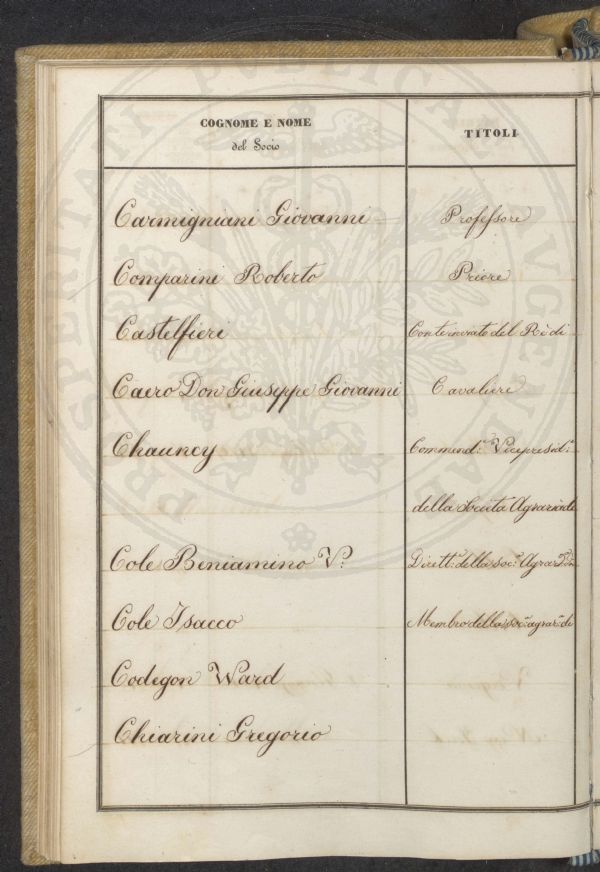 COGNOME E NOME
del Socio
TITOLI
Carmigniani Giovanni Professore
Comparini Roberto Priore
Castelfieri Conterinato del Rè di
Caero Don Giuseppe Giovanni Cavaliere
Chauncy Commend.e Vicepresid.e
della Societa Agraria di
Cole Beniamino V.º Dirett.e della soc.a Agrar.a
Cole Isacco Membro della soc.a agrar.a di
Codegon Ward
Chiarini Gregorio
PROSPERITATI PUBLICAE AUGENDAE